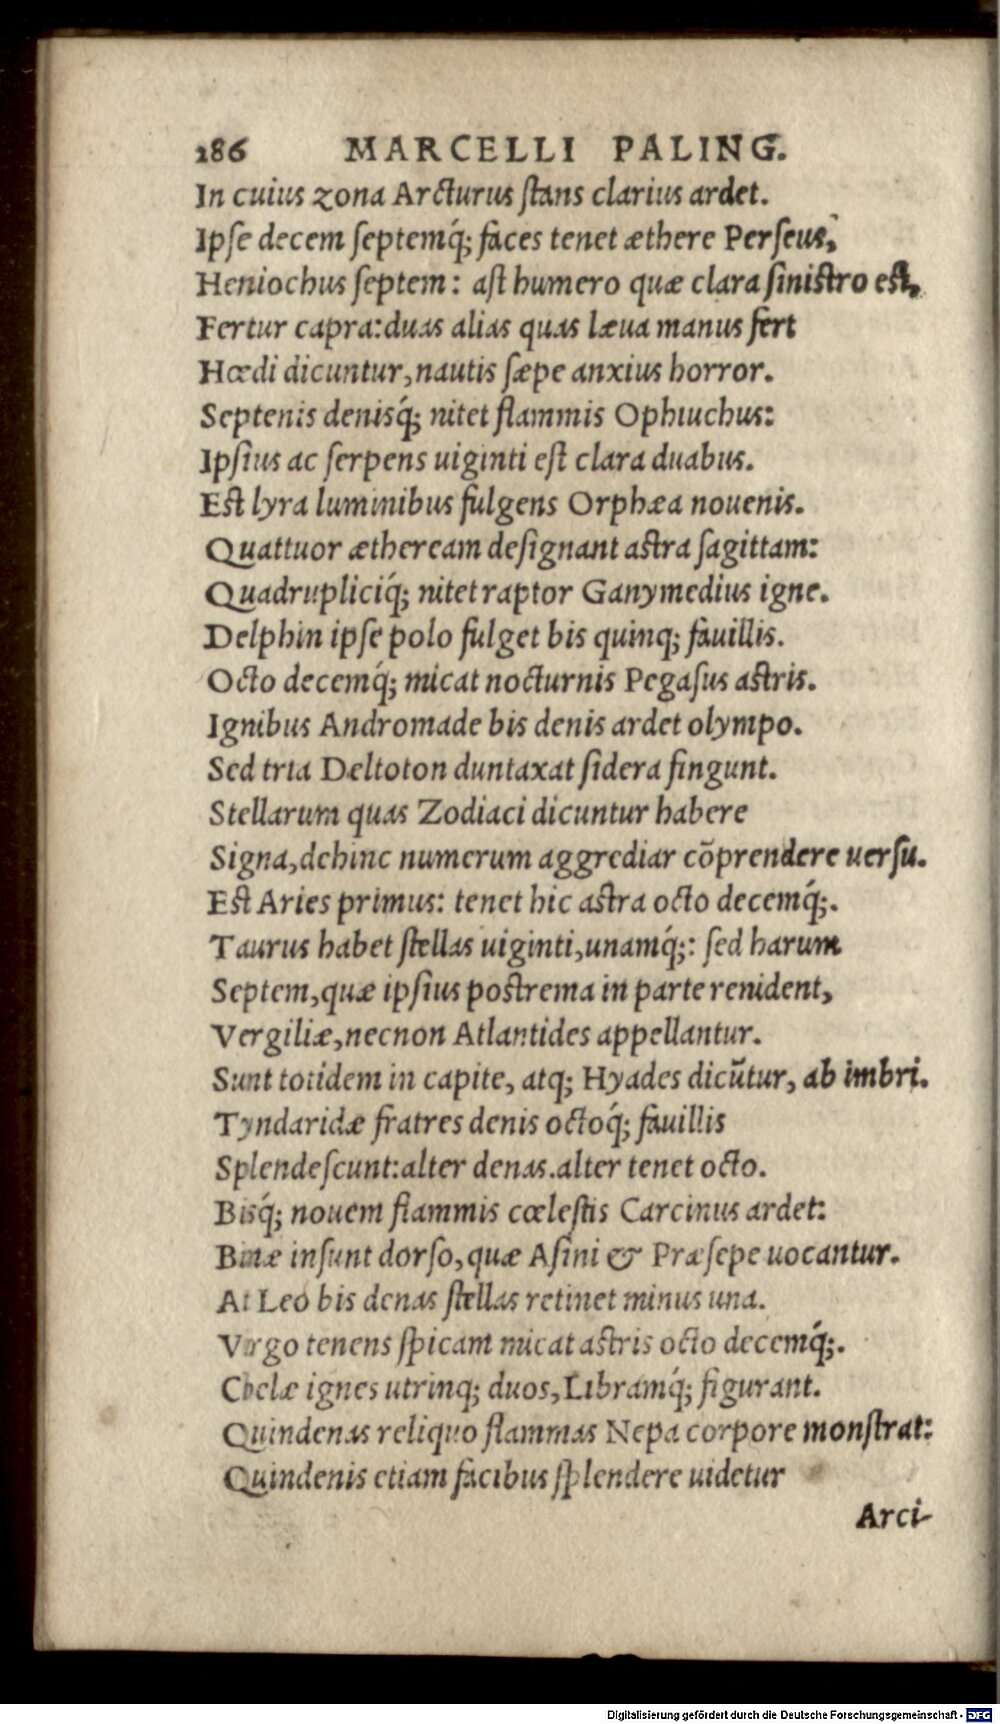 286 MARCELLI PALING.
In cuius zona Arcturus ſtans clarius ardet.
Ipſe decem ſeptemq́; faces tenet æthere Perſeus,
Heniochus ſeptem: aſt humero quæ clara ſiniſtro eſt,
Fertur capra: duas alias quas læua manus fert
Hœdi dicuntur, nautis ſæpe anxius horror.
Septenis deniſq́; nitet flammis Ophiuchus:
Ipſius ac ſerpens uiginti eſt clara duabus.
Eſt lyra luminibus fulgens Orphæa nouenis.
Quattuorætheream deſignant aſtra ſagittam:
Quadrupliciq́; nitet raptor Ganymedius igne.
Delphin ipſe polo fulget bis quinq; fauillis.
Octo decemq́; micat nocturnis Pegaſus aſtris.
Ignibus Andromade bis denis ardet olympo.
Sed tria Deltoton duntaxat ſidera fingunt.
Stellarum quas Zodiaci dicuntur habere
Signa, dehinc numerum aggrediar cõprendere uerſu.
Eſt Aries primus: tenet hic aſtra octo decemq́;.
Taurus habet ſtellas uiginti, unamq́;: ſed harum
Septem, quæ ipſius poſtrema in parte renident,
Vergiliæ, necnon Atlantides appellantur.
Sunt totidem in capite, atq; Hyades dicũtur, ab imbri.
Tyndaridæ fratres denis octoq́; fauillis
Splendeſcunt: alter denas. alter tenet octo.
Biſq́; nouem flammis cœleſtis Carcinus ardet:
Binæ inſunt dorſo, quæ Aſini & Præſepe uocantur.
At Leo bis denas ſtellas retinet minus una.
Virgo tenens ſpicam micat aſtris octo decemq́;.
Chelæ ignes utrinq; duos, Libramq́; figurant.
Quindenas reliquo flammas Nepa corpore monſtrat:
Quindenis etiam facibus ſplendere uidetur
Arci-
Digitalisierung gefördert durch die Deutsche Forschungsgemeinschaft - DFG